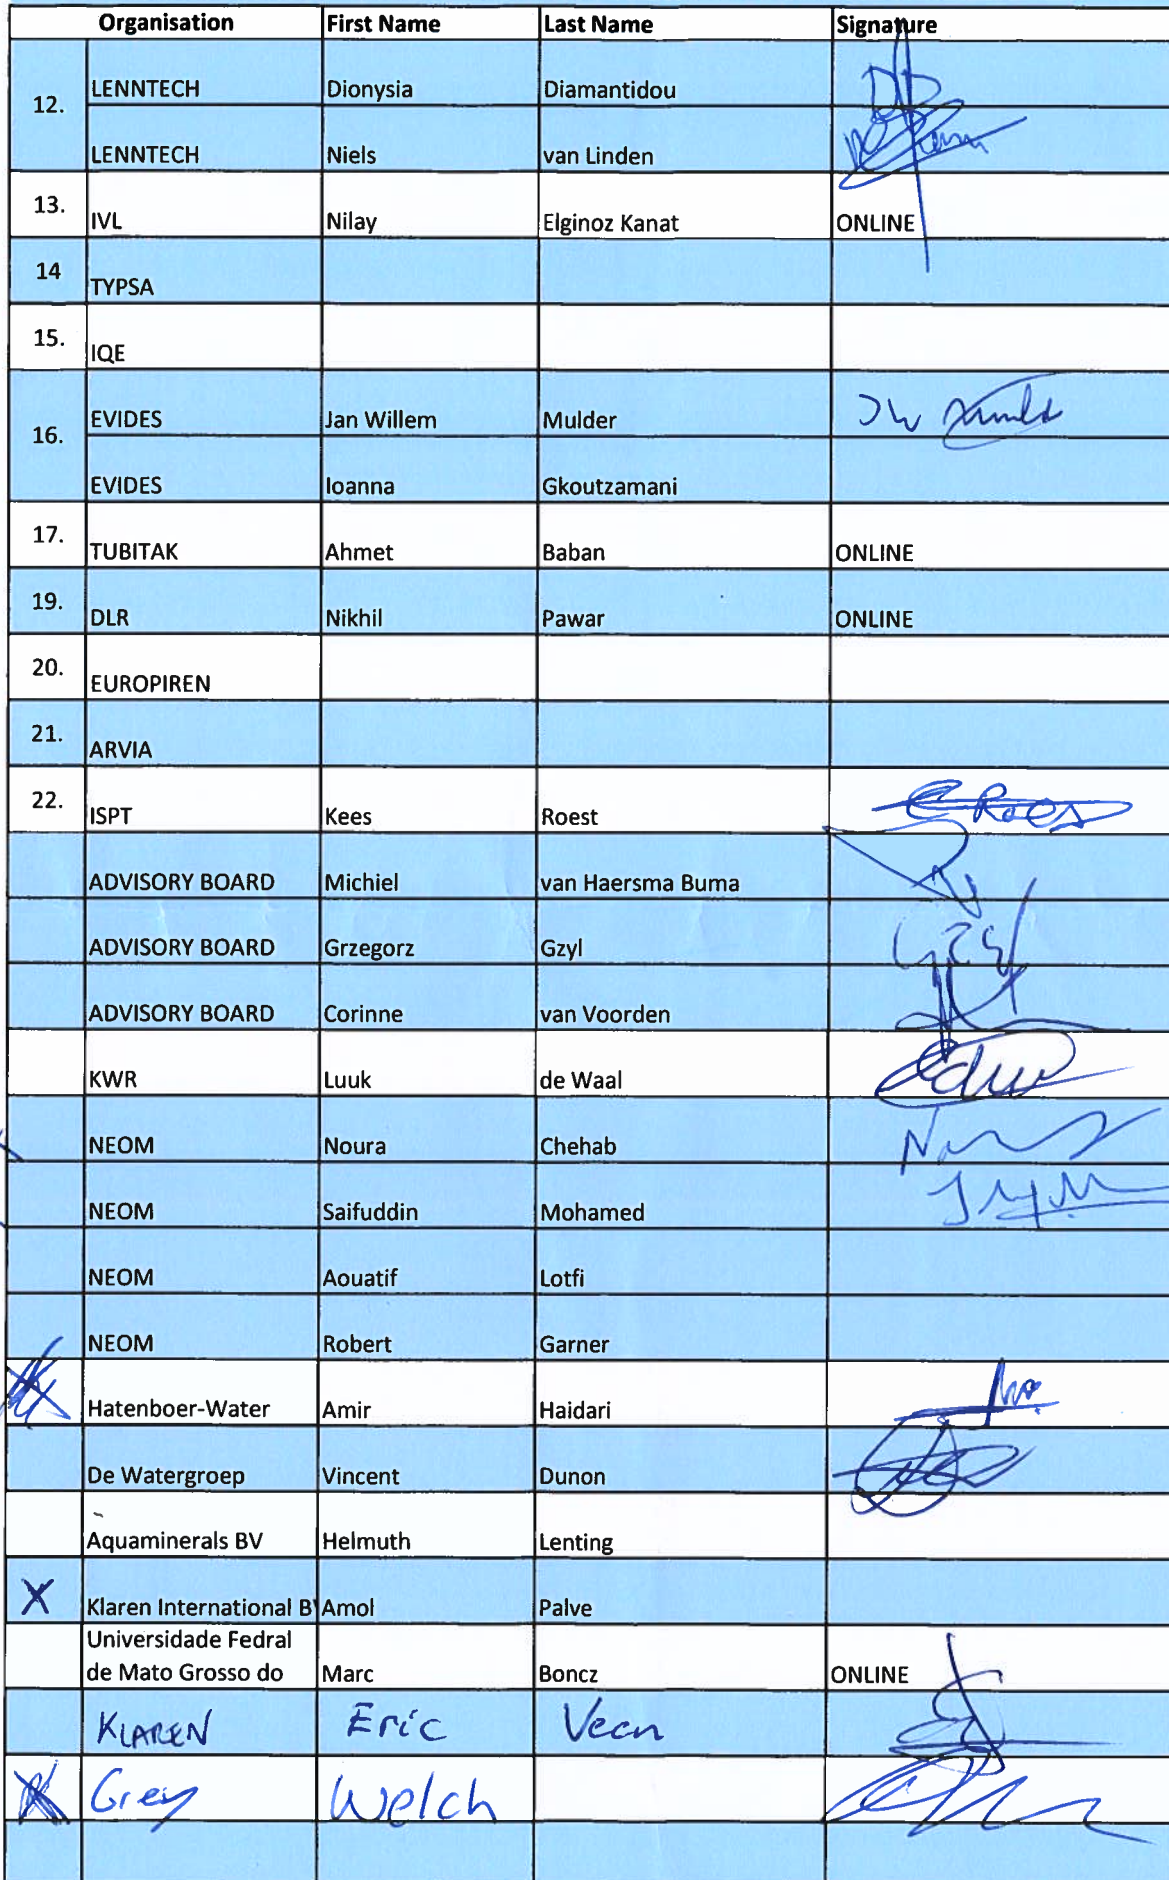 Organisation First Name Last Name Signature
12. LENNTECH Dionysia Diamantidou
LENNTECH Niels van Linden
13. IVL Nilay Elginoz Kanat ONLINE
14 TYPSA
15. IQE
16. EVIDES Jan Willem Mulder JW
EVIDES Ioanna Gkoutzamani
17. TUBITAK Ahmet Baban ONLINE
19. DLR Nikhil Pawar ONLINE
20. EUROPIREN
21. ARVIA
22. ISPT Kees Roest
ADVISORY BOARD Michiel van Haersma Buma
ADVISORY BOARD Grzegorz Gzyl
ADVISORY BOARD Corinne van Voorden
KWR Luuk de Waal
NEOM Noura Chehab
NEOM Saifuddin Mohamed
NEOM Aouatif Lotfi
NEOM Robert Garner
Hatenboer-Water Amir Haidari
De Watergroep Vincent Dunon
Aquaminerals BV Helmuth Lenting
X Klaren International B Amol Palve
Universidade Fedral
de Mato Grosso do Marc Boncz ONLINE
KLAREN Eric Veen
Greg Welch